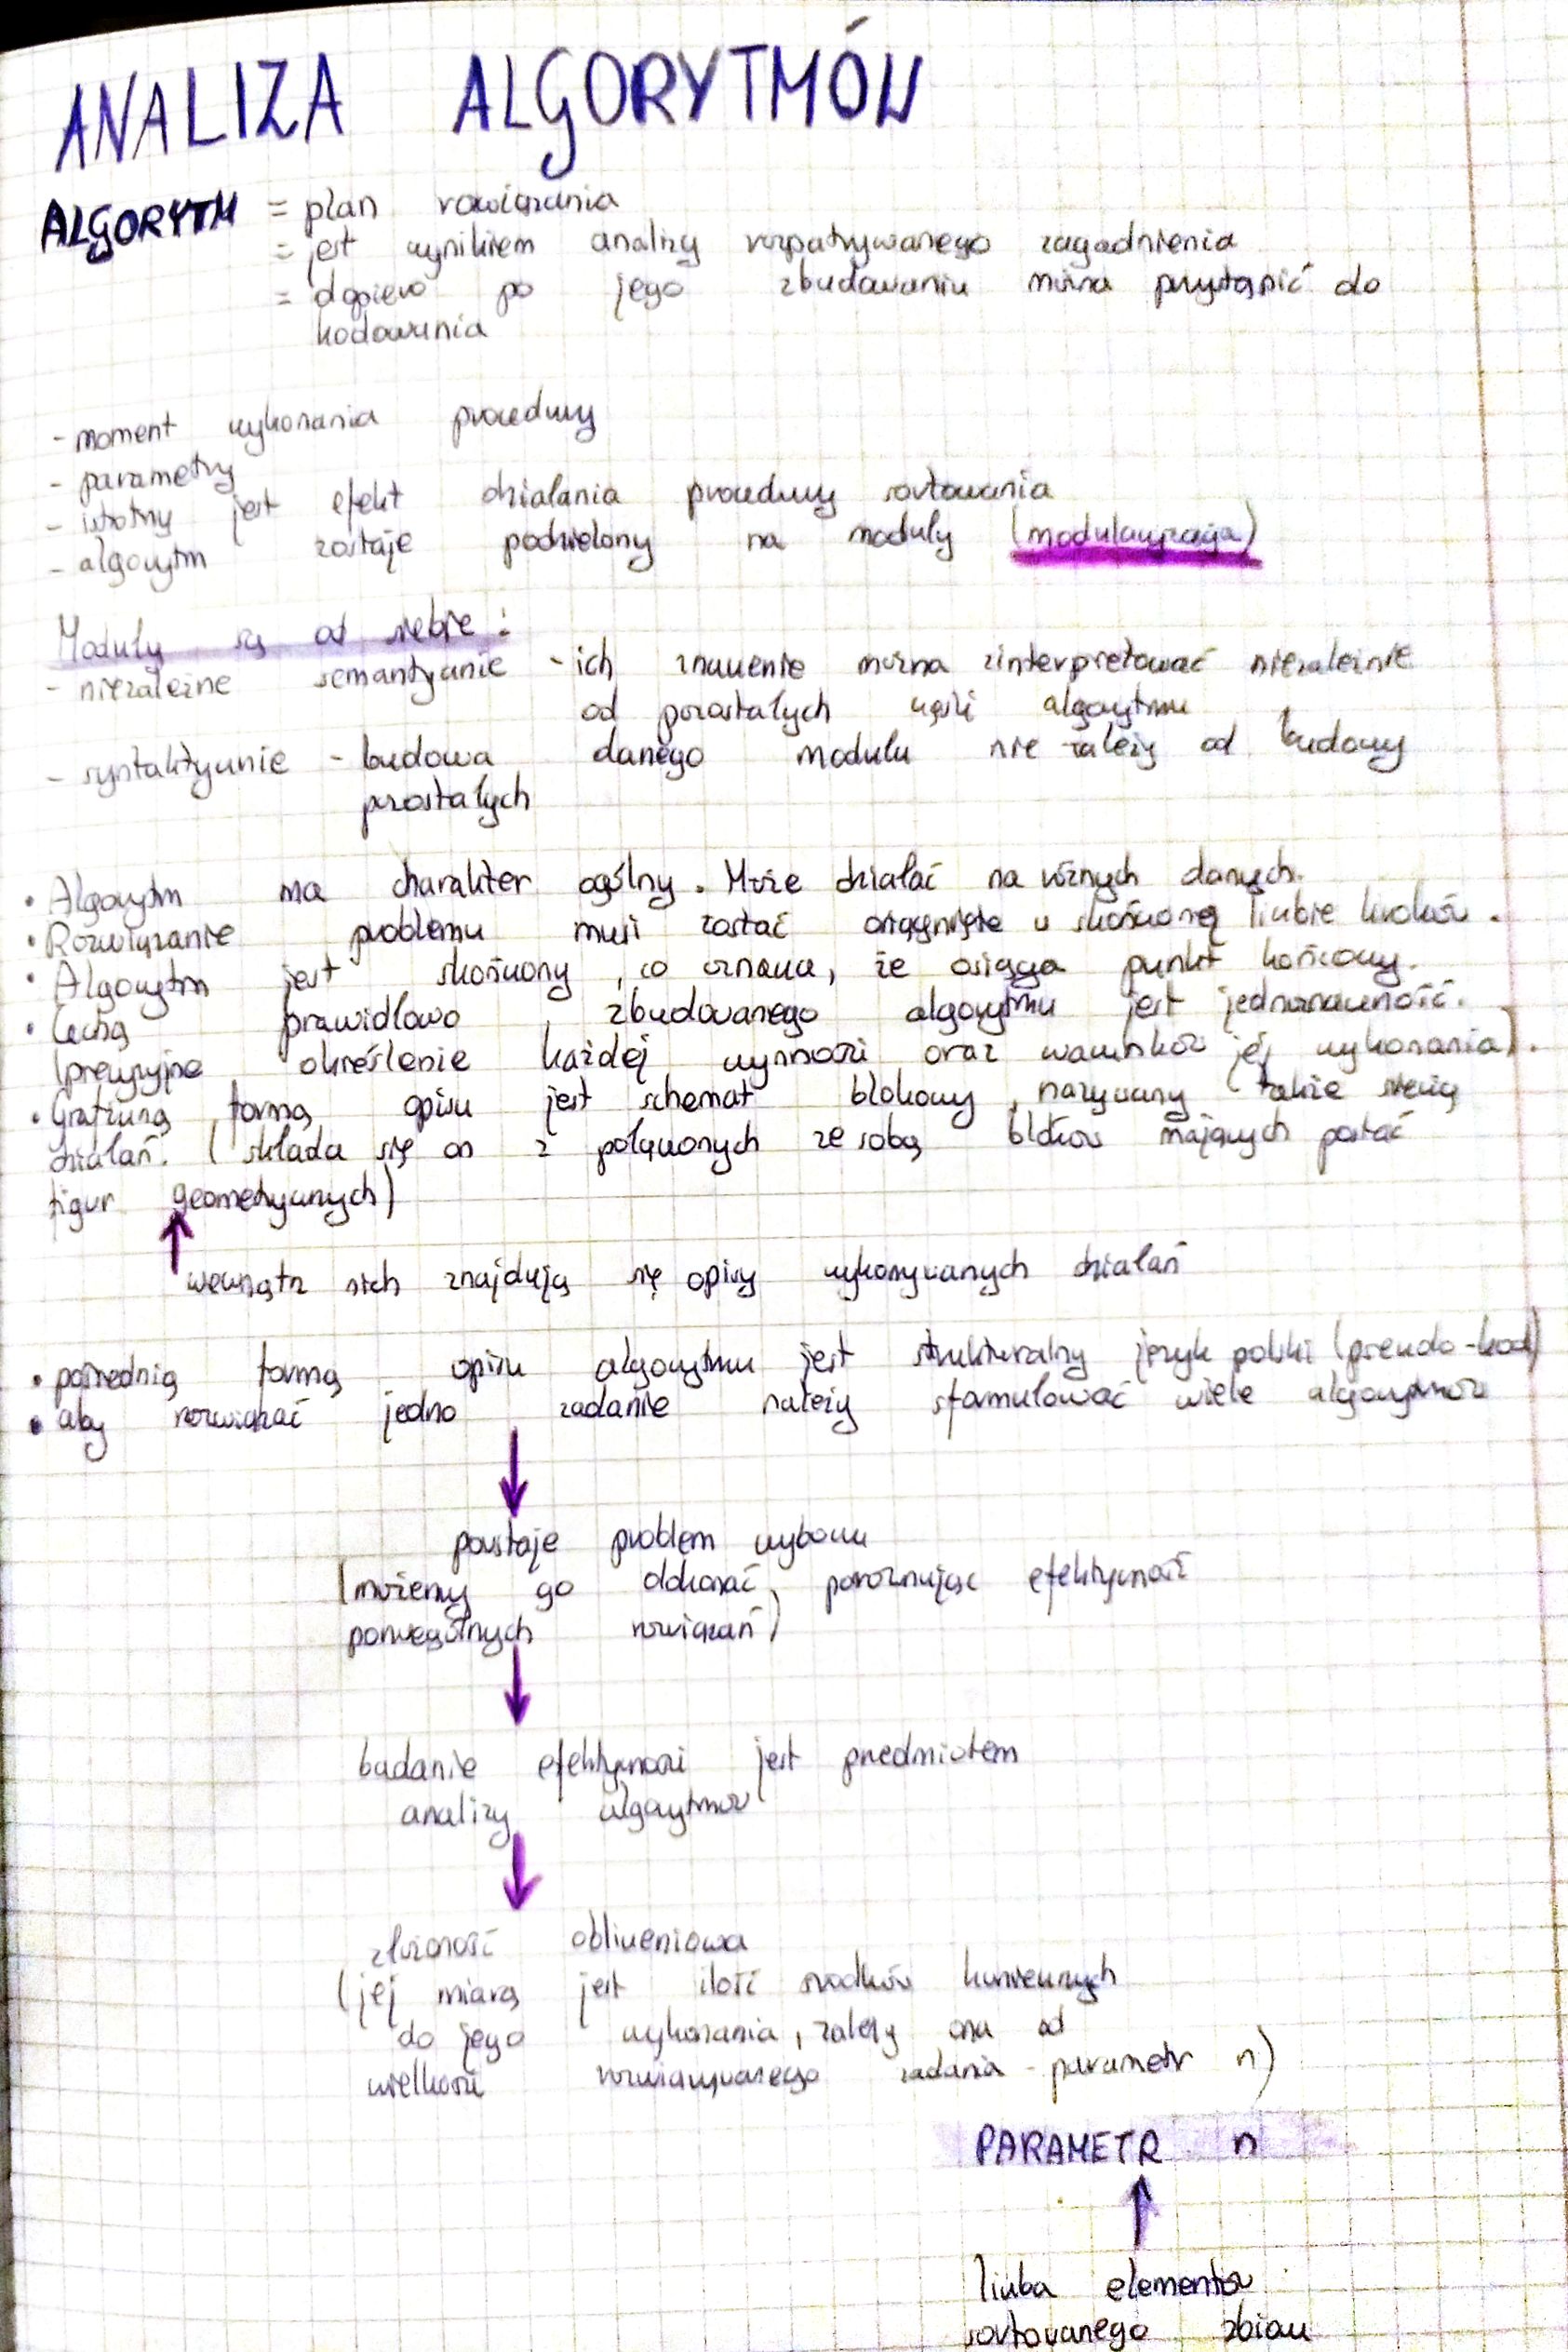 ANALIZA ALGORYTMÓW
ALGORYTM = plan rozwiązania
= jest wynikiem analizy rozpatrywanego zagadnienia
= dopiero po jego zbudowaniu można przystąpić do
kodowania
- moment wykonania procedury
- parametry
- istotny jest efekt działania procedury sortowania
- algorytm zostaje podzielony na moduły (modularyzacja)
Moduły są od siebie:
- niezależne semantycznie - ich znaczenie można zinterpretować niezależnie
od pozostałych części algorytmu
- syntaktycznie - budowa danego modułu nie zależy od budowy
pozostałych
• Algorytm ma charakter ogólny. Może działać na różnych danych.
• Rozwiązanie problemu musi zostać osiągnięte w skończonej liczbie kroków.
• Algorytm jest skończony, co oznacza, że osiąga punkt końcowy.
• Cechą prawidłowo zbudowanego algorytmu jest jednoznaczność.
(precyzyjne określenie każdej czynności oraz warunków jej wykonania).
• Graficzną formą opisu jest schemat blokowy, nazywany także siecią
działań. (składa się on z połączonych ze sobą bloków mających postać
figur geometrycznych)
wewnątrz nich znajdują się opisy wykonywanych działań
• pośrednią formą opisu algorytmu jest strukturalny język polski (pseudo-kod)
• aby rozwiązać jedno zadanie należy sformułować wiele algorytmów
powstaje problem wyboru
(możemy go dokonać, porównując efektywność
poszczególnych rozwiązań)
badanie efektywności jest przedmiotem
analizy algorytmów
złożoność obliczeniowa
(jej miarą jest ilość środków koniecznych
do jego wykonania, zależy ona od
wielkości rozwiązywanego zadania - parametr n)
PARAMETR n
liczba elementów
sortowanego zbioru